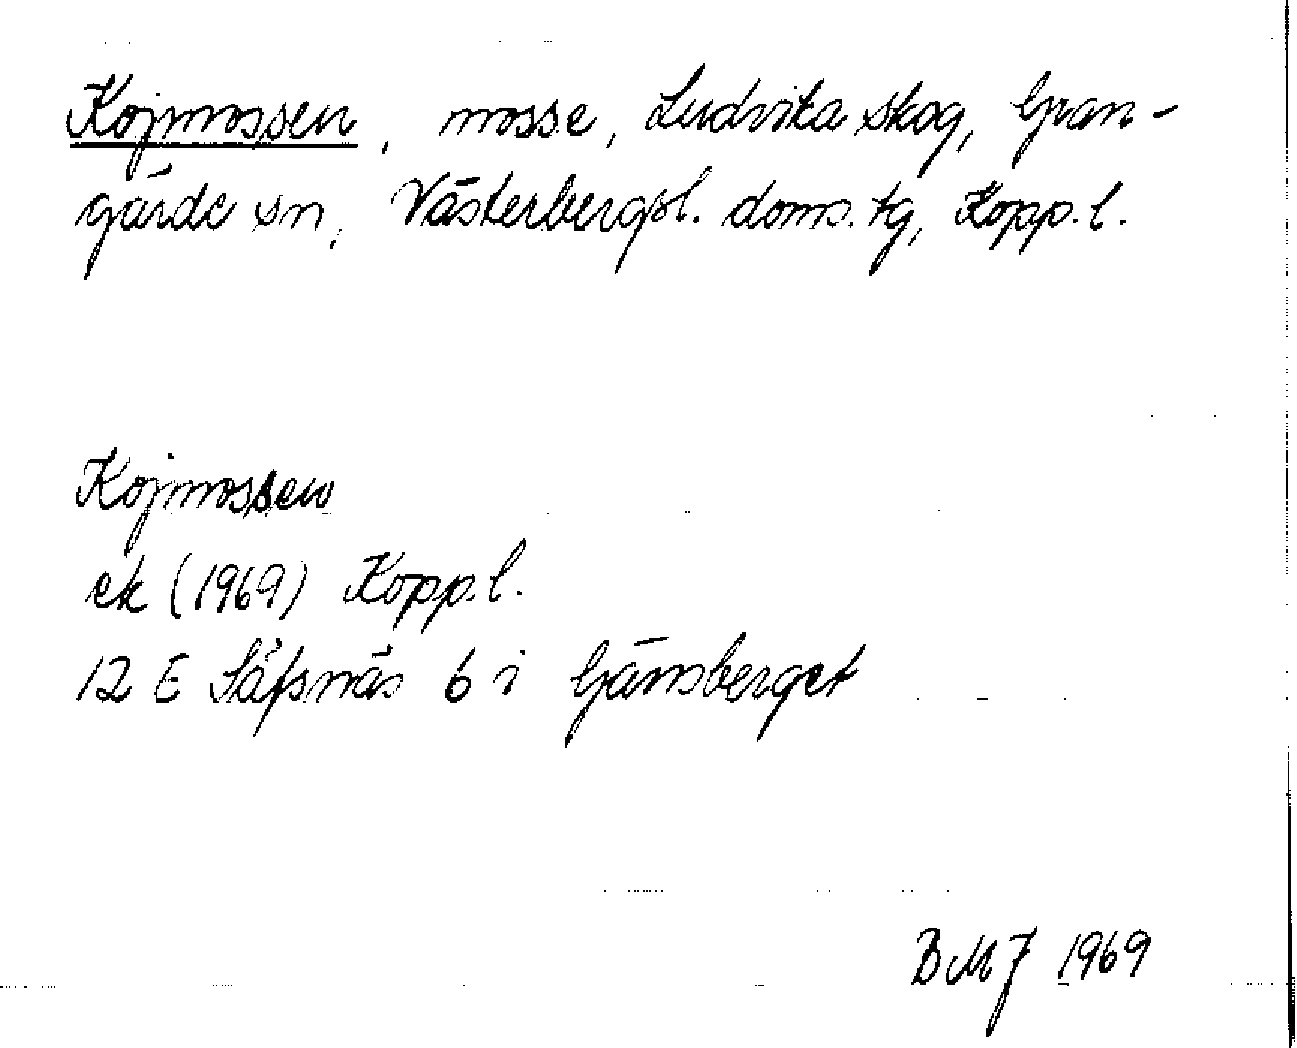 Kojmossen, mosse, Ludvika skog, Gran-
gärde sn, Västerbergsl. doms. tg, Kopp. l.
Kojmossen
ek (1969) Kopp. l.
12 E Säfsnäs 6 i Gänsberget
BMJ 1969